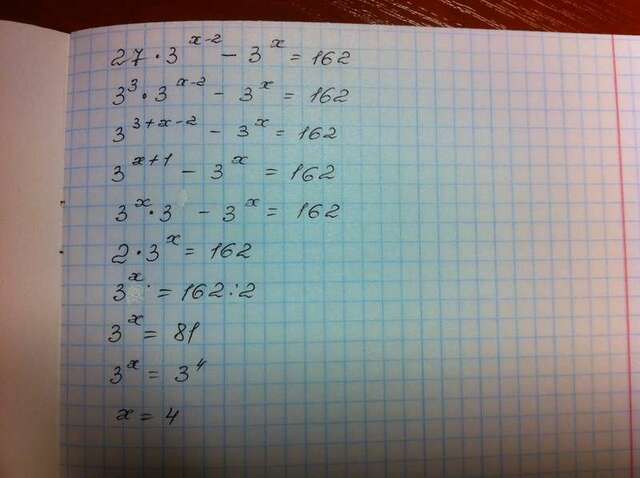 27 · 3^(x-2) - 3^x = 162
3^3 · 3^(x-2) - 3^x = 162
3^(3+x-2) - 3^x = 162
3^(x+1) - 3^x = 162
3^x · 3 - 3^x = 162
2 · 3^x = 162
3^x = 162 : 2
3^x = 81
3^x = 3^4
x = 4